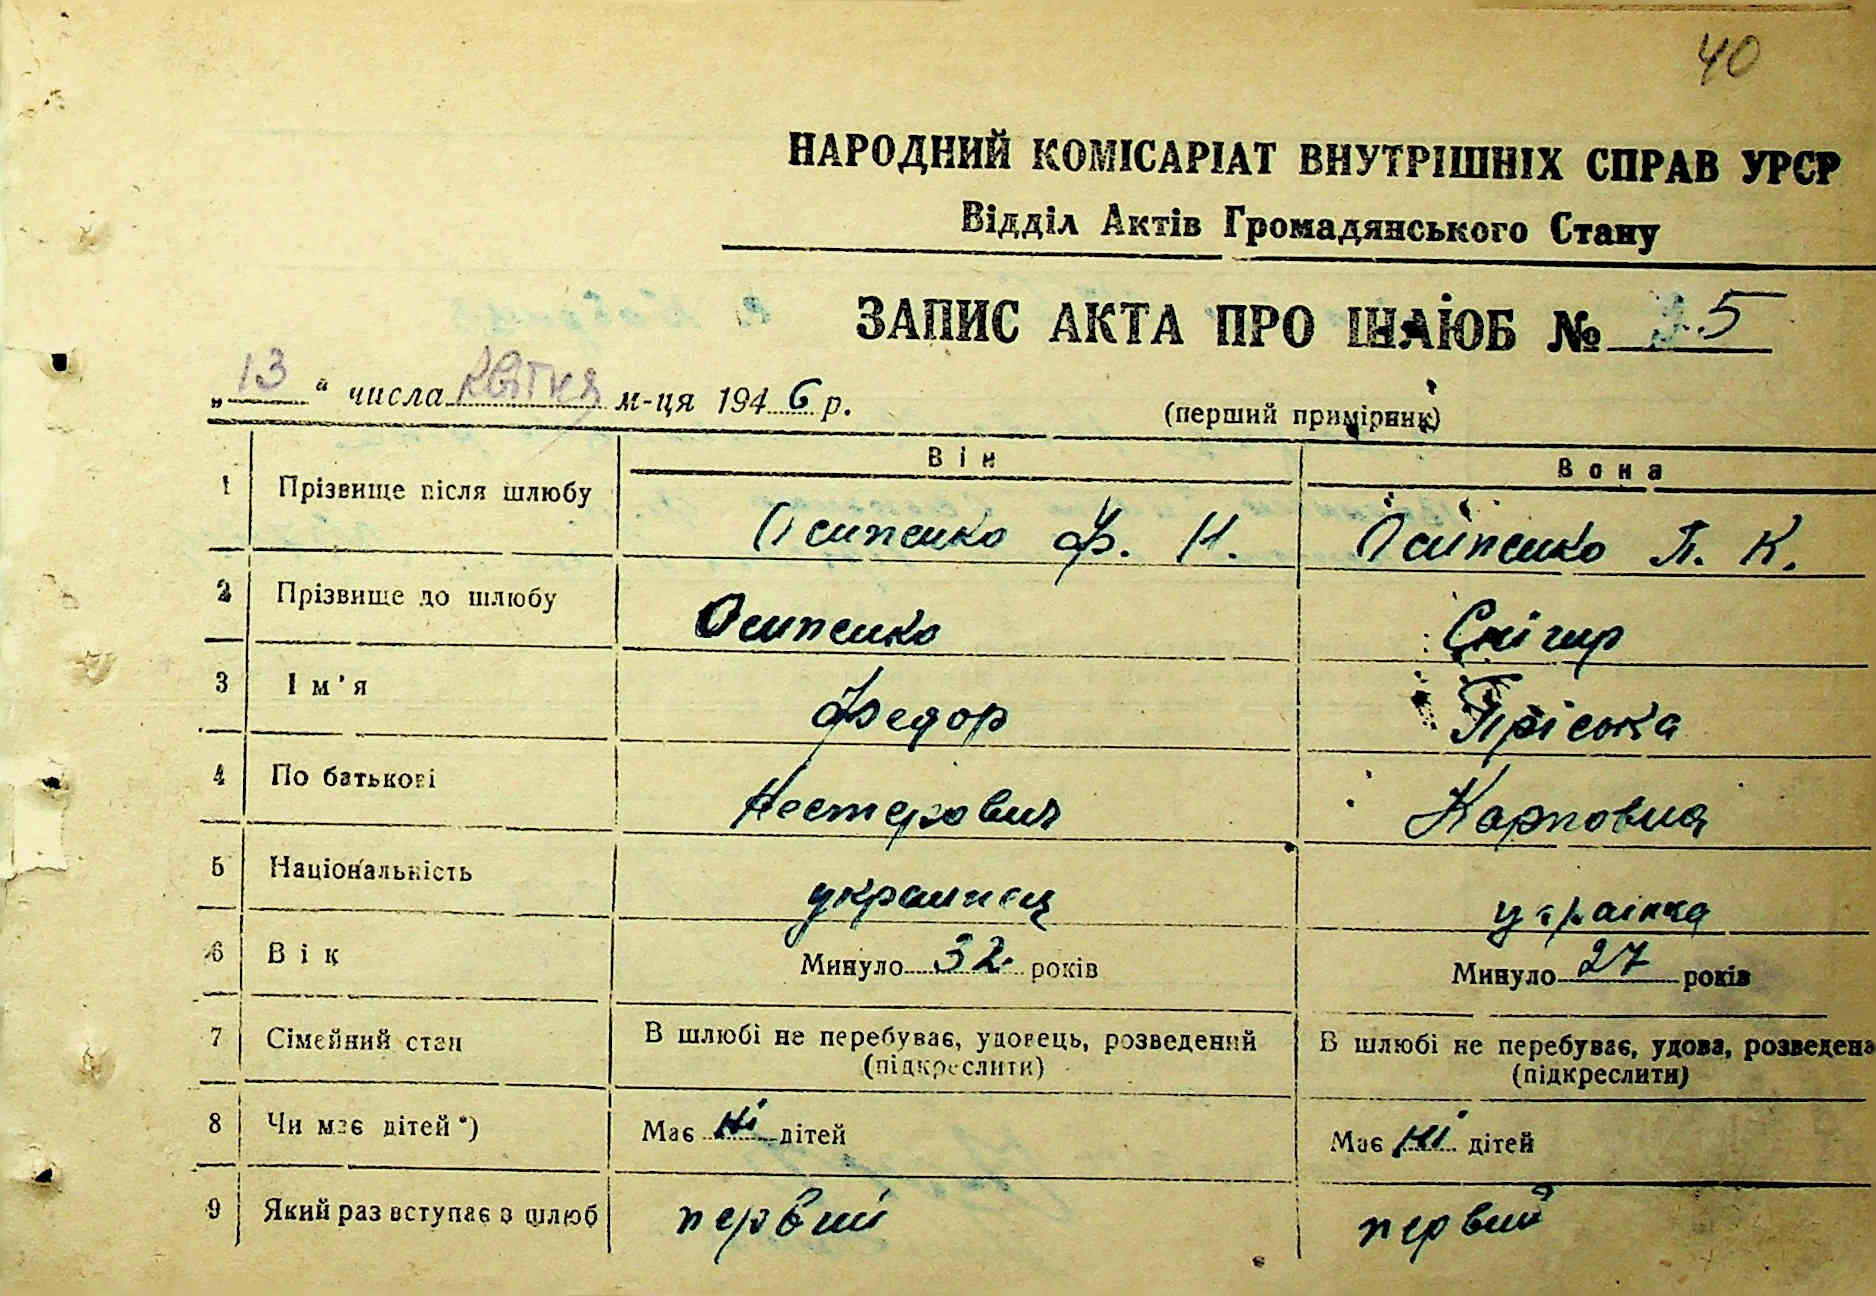 40
НАРОДНИЙ КОМІСАРІАТ ВНУТРІШНІХ СПРАВ УРСР
Відділ Актів Громадянського Стану
ЗАПИС АКТА ПРО ШЛЮБ № 5
„13" числа квітня м-ця 1946 р.
(перший примірник)
Він Вона
1 Прізвище після шлюбу Осипенко Ф. Н. Осипенко П. К.
2 Прізвище до шлюбу Осипенко Снігир
3 Ім'я Федор Пріська
4 По батькові Нестерович Карповна
5 Національність украинец украінка
6 Вік Минуло 32 років Минуло 27 років
7 Сімейний стан В шлюбі не перебуває, удовець, розведений В шлюбі не перебуває, удова, розведена
(підкреслити) (підкреслити)
8 Чи має дітей*) Має ні дітей Має ні дітей
9 Який раз вступає в шлюб первий первий